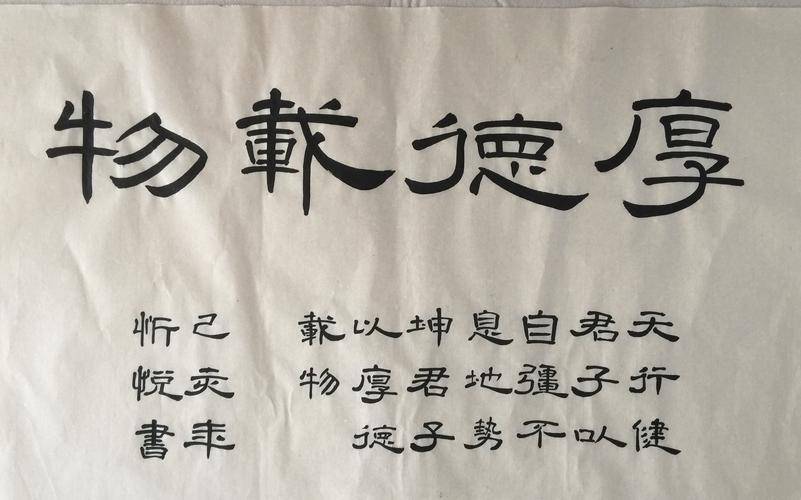 厚德載物
天行健
君子以
自彊不
息地勢
坤君子
以厚德
載物
己亥年
忻悅書